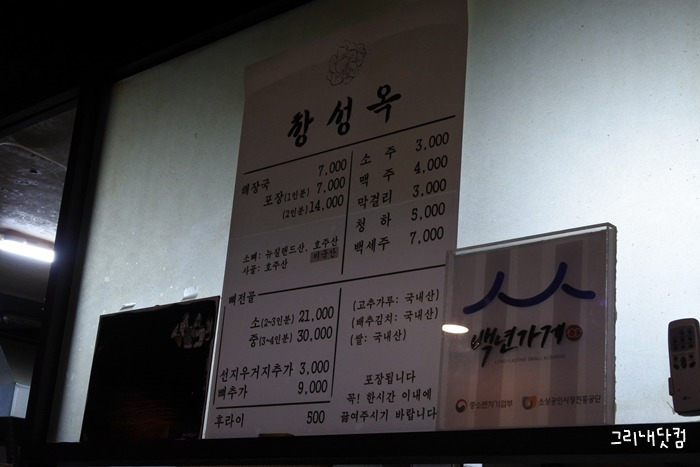 창성옥
해장국 7,000
포장(1인분) 7,000
(2인분) 14,000
소뼈: 뉴질랜드산, 호주산
사골: 호주산 미국산
뼈전골
소(2~3인분) 21,000
중(3~4인분) 30,000
선지우거지추가 3,000
뼈추가 9,000
후라이 500
소주 3,000
맥주 4,000
막걸리 3,000
청하 5,000
백세주 7,000
(고추가루: 국내산)
(배추김치: 국내산)
(쌀: 국내산)
포장됩니다
꼭! 한시간 이내에
끓여주시기 바랍니다
백년가게
중소벤처기업부 소상공인시장진흥공단
그리내닷컴